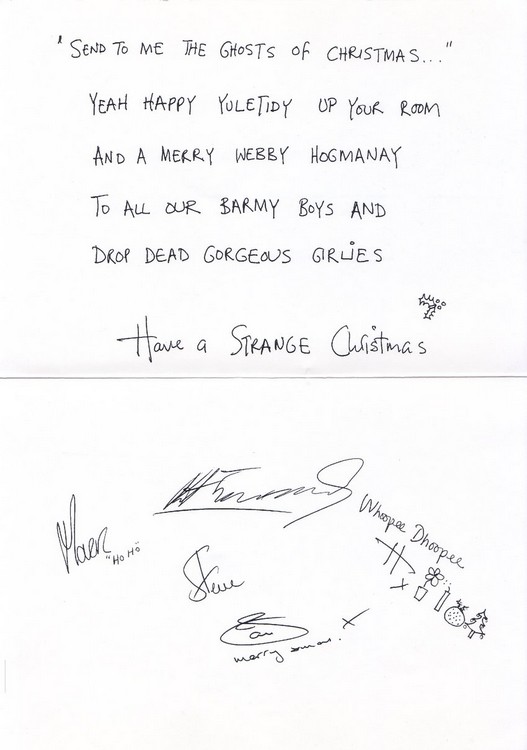 "SEND TO ME THE GHOSTS OF CHRISTMAS..."
YEAH HAPPY YULETIDY UP YOUR ROOM
AND A MERRY WEBBY HOGMANAY
TO ALL OUR BARMY BOYS AND
DROP DEAD GORGEOUS GIRLIES
Have a STRANGE Christmas
Whoopee Dhoopee
H
x
Mark
"HO HO"
Steve
Ian x
merry xmas.